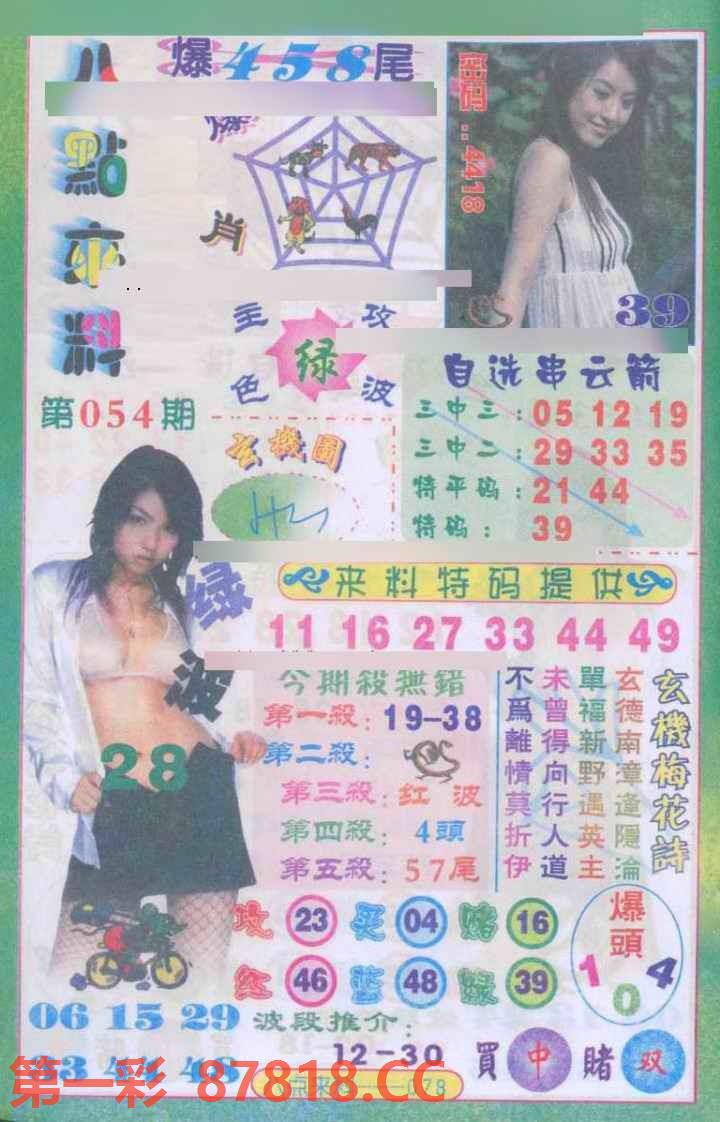 爆458尾
八點來料
爆肖
旺码:4418
39
主攻
绿
色波
第054期
自选串云箭
三中三:05 12 19
三中二:29 33 35
特平码:21 44
特码:39
玄機圖
来料特码提供
11 16 27 33 44 49
绿波
28
今期殺無錯
第一殺:19-38
第二殺:
第三殺:红波
第四殺:4頭
第五殺:57尾
玄機梅花詩
玄德南漳逢隱淪
單福新野遇英主
未曾得向行人道
不爲離情莫折伊
攻 23 买 04 赌 16
红 46 藍 48 綠 39
爆頭
1 0 4
06 15 29
波段推介:
12-30
買中 賭双
第一彩 87818.CC